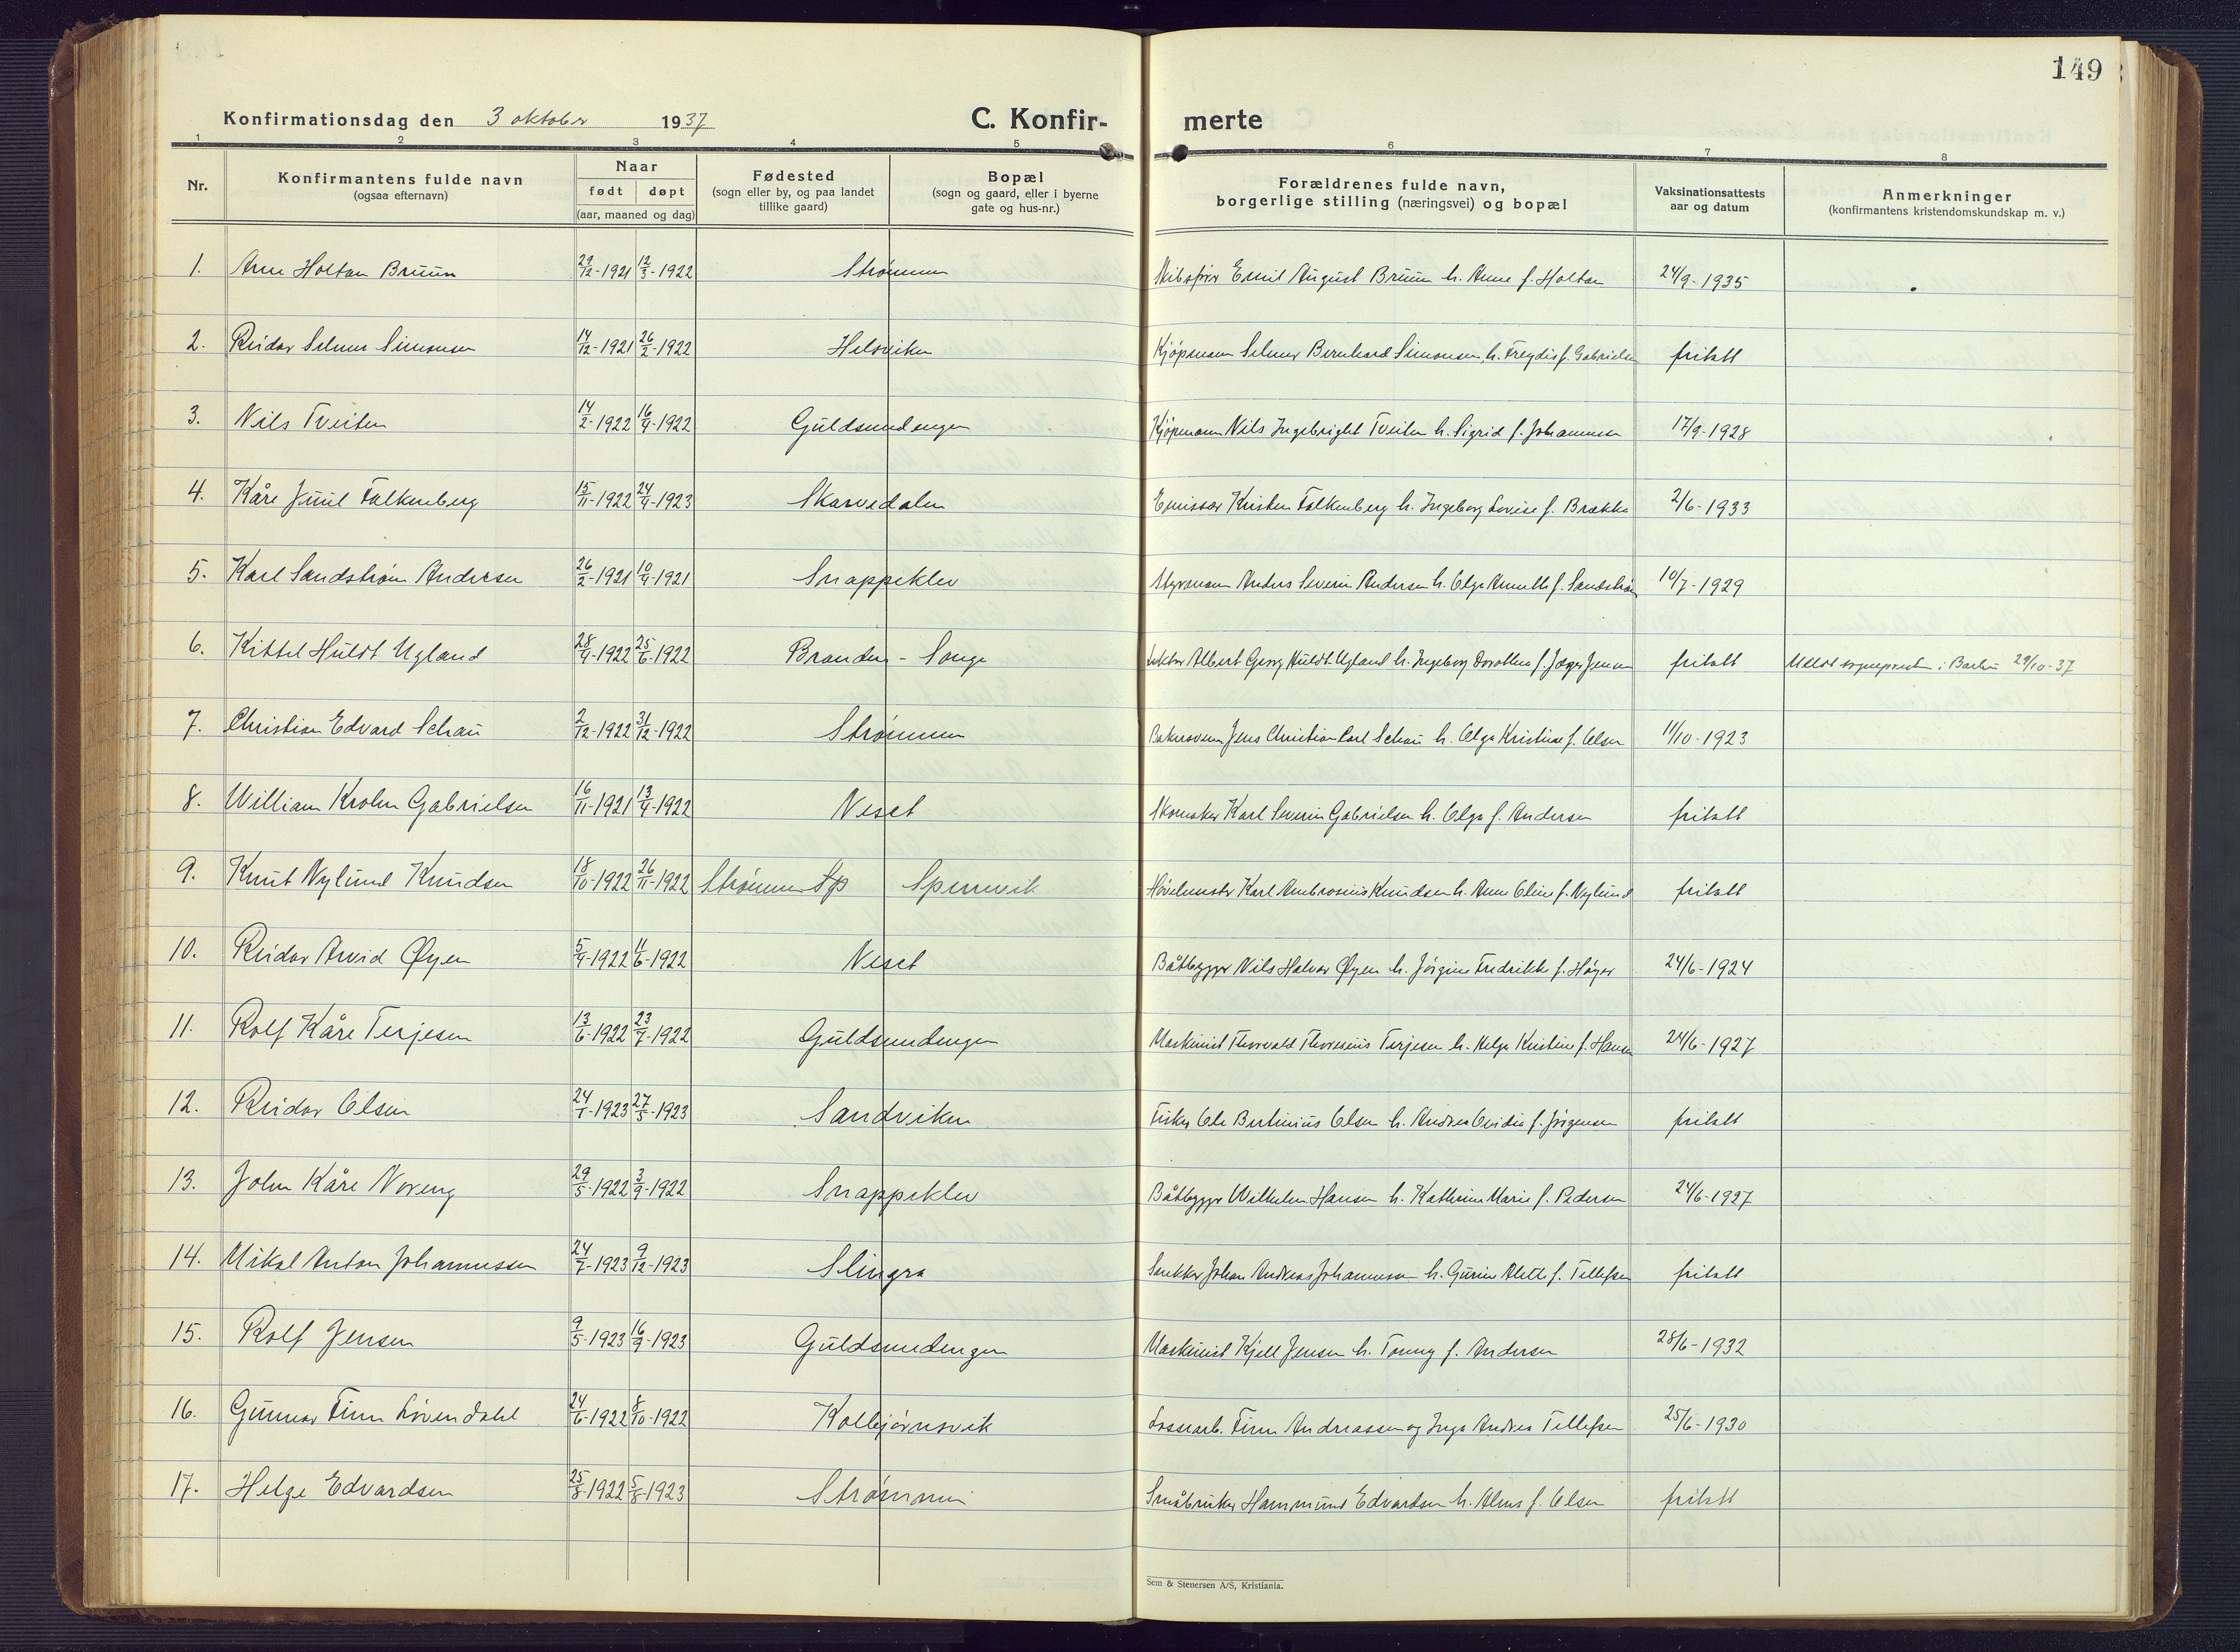 149
Konfirmationsdag den 3 oktober 1937 C. Konfir- merte
1 2 3 4 5 6 7 8
Nr. Konfirmantens fulde navn (ogsaa efternavn) Naar født døpt (aar, maaned og dag) Fødested (sogn eller by, og paa landet tillike gaard) Bopæl (sogn og gaard, eller i byerne gate og hus-nr.) Forældrenes fulde navn, borgerlige stilling (næringsvei) og bopæl Vaksinationsattests aar og datum Anmerkninger (konfirmantens kristendomskundskap m. v.)
1. Arne Holtan Bruun 29/12-1921 12/3-1922 Strømmen Skibsfører Emil August Bruun h. Anne f. Holtan 24/9-1935
2. Reidar Selmer Simonsen 14/12-1921 26/2-1922 Hilsviken Kjøpmann Selmer Bernhard Simonsen h. Freydis f. Gabrielsen fritatt
3. Nils Tveiten 14/2-1922 16/4-1922 Guldsmedengen Kjøpmann Nils Ingebright Tveiten h. Sigrid f. Johannessen 17/9-1928
4. Kåre Juul Falkenberg 15/11-1922 24/4-1923 Skarvedalen Emissær Kristen Falkenberg h. Ingeborg Lovise f. Brække 2/6-1933
5. Karl Sandstrøm Andersen 26/2-1921 10/4-1921 Snappeklev Styrmann Anders Severin Andersen h. Olga Annette f. Sandstrøm 10/7-1929
6. Kittel Huldt Ugland 28/4-1922 25/6-1922 Branden - Songe Lektor Albert Georg Huldt Ugland h. Ingeborg Dorothea f. Jæger Jensen fritatt Meldt sognepresten i Barbu 29/10-37
7. Christian Edvard Schau 2/12-1922 31/12-1922 Strømmen Bakersvenn Jens Christian Carl Schau h. Olga Kristine f. Olsen 11/10-1923
8. William Krohn Gabrielsen 16/11-1921 13/4-1922 Neset Skomaker Karl Severin Gabrielsen h. Olga f. Andersen fritatt
9. Knut Nylund Knudsen 18/10-1922 26/11-1922 Strømmen Sp Spervik Høvelmester Karl Ambrosius Knudsen h. Anne Oline f. Nylund fritatt
10. Reidar Arvid Øyen 5/4-1922 11/6-1922 Neset Båtbygger Nils Halvor Øyen h. Jørgine Fredrikke f. Høyer 24/6-1924
11. Rolf Kåre Terjesen 13/6-1922 23/7-1922 Guldsmedengen Maskinist Thorvald Thoresius Terjesen h. Helga Kristine f. Hansen 24/6-1927
12. Reidar Olsen 24/1-1923 27/5-1923 Sandviken Fisker Ole Bertinius Olsen h. Andrea Ovidia f. Jørgensen fritatt
13. John Kåre Noreng 29/5-1922 3/9-1922 Snappeklev Båtbygger Wilhelm Hansen h. Kathrine Marie f. Pedersen 24/6-1927
14. Mikal Anton Johannessen 24/7-1923 9/12-1923 Slingra Snekker Johan Andreas Johannessen h. Gurine Alette f. Tellefsen fritatt
15. Rolf Jensen 9/5-1923 16/9-1923 Guldsmedengen Maskinist Kjell Jensen h. Tonny f. Andersen 28/6-1932
16. Gunnar Finn Løvendahl 24/6-1922 8/10-1922 Kolbjørnsvik Lossearb. Finn Andreassen og Inga Andrea Tellefsen 25/6-1930
17. Helge Edvardsen 25/8-1922 5/8-1923 Strømmen Småbruker Hammund Edvardsen h. Alma f. Olsen fritatt
Sem & Stenersen A/S, Kristiania.